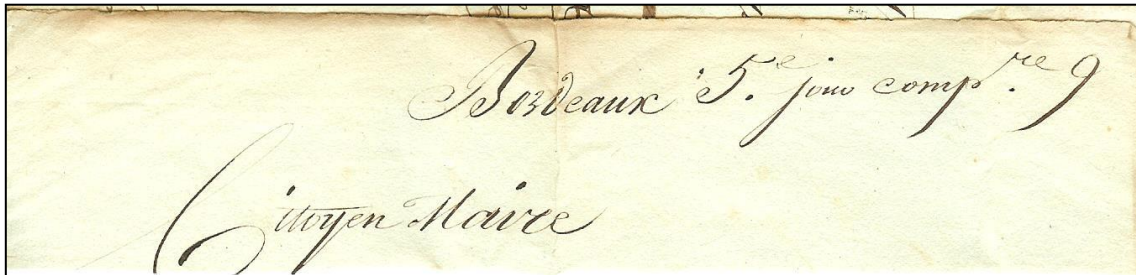 Bordeaux 5.e jour comp.re 9
Citoyen Maire